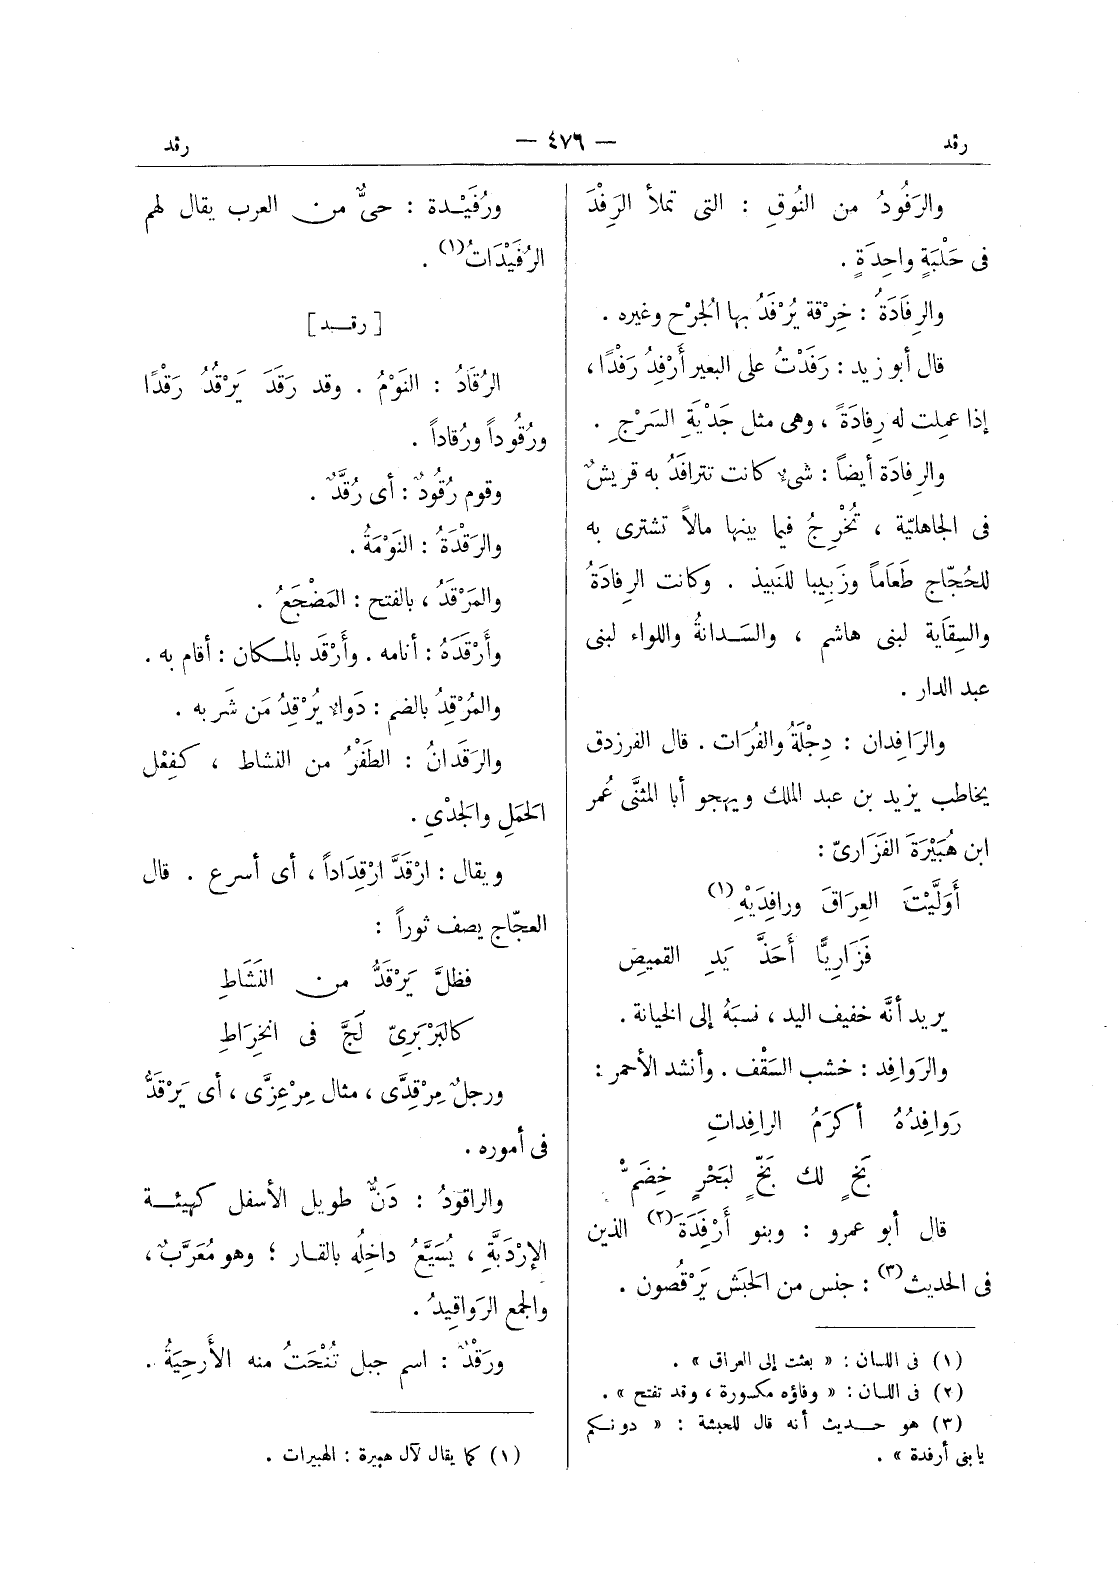 رفد
— ٤٧٦ —
رقد
والرَفُودُ من النُوقِ : التى تملأ الرِفْدَ
فى حَلْبَةٍ واحِدَةٍ .
والرِفَادَةُ : خِرْقة يُرْفَدُ بها الجُرْح وغيره .
قال أبو زيد : رَفَدْتُ على البعير أَرْفِدُ رَفْدًا ،
إذا عملت له رِفادَةً ، وهى مثل جَدْيَةِ السَرْجِ .
والرِفادَة أيضاً : شىء كانت تترافَدُ به قريشٌ
فى الجاهليّة ، تُخْرِجُ فيما بينها مالاً تشترى به
للحُجّاج طَعَاماً وزَبِيبا للنَبيذ . وكانت الرِفادَةُ
والسِقَاية لبنى هاشم ، والسَـدانةُ واللواء لبنى
عبد الدار .
والرَافِدان : دِجْلَةُ والفُرَات . قال الفرزدق
يخاطب يزيد بن عبد الملك ويهجو أبا المثنَّى عُمر
ابن هُبَيْرَةَ الفَزَارىّ :
أَوَلَّيْتَ العِرَاقَ ورافِدَيْهِ (١)
فَزَارِيًّا أَحَذَّ يَدِ القميصِ
يريد أنَّه خفيف اليد ، نسبَهُ إلى الخيانة .
والرَوافِد : خشب السَقْف . وأنشد الأحمر :
رَوافِدُهُ أكرَمُ الرافِداتِ
بَخٍ لك بَخٍّ لبَحْرٍ خِضَمّْ
قال أبو عمرو : وبنو أَرْفِدَةَ (٢) الذين
فى الحديث (٣) : جنس من الحَبَش يَرْقُصون .
(١) فى اللسان : « بعثت إلى العراق » .
(٢) فى اللسان : « وفاؤه مكسورة ، وقد تفتح » .
(٣) هو حـديث أنه قال للحبشة : « دونكم
يابنى أرفدة » .
ورُفَيْـدة : حىٌّ من العرب يقال لهم
الرُفَيْدَاتُ (١) .
[ رقـد ]
الرُقَادُ : النَوْمُ . وقد رَقَدَ يَرْقُدُ رَقْدًا
ورُقُوداً ورُقاداً .
وقوم رُقُودٌ : أى رُقَّدٌ .
والرَقْدَةُ : النَوْمَةُ .
والمَرْقَدُ ، بالفتح : المَضْجَعُ .
وأَرْقَدَهُ : أنامه . وأَرْقَد بالمـكان : أقام به .
والمُرْقِدُ بالضم : دَواء يُرْقِدُ مَن شَربه .
والرَقَدَانُ : الطَفْرُ من النشاط ، كفِعْل
الحَمَلِ والجَدْىِ .
ويقال : ارْقَدَّ ارْقِدَاداً ، أى أسرع . قال
العجّاج يصف ثوراً :
فظلَّ يَرْقَدُّ من النَشَاطِ
كالبَرْبَرِىّ لَجَّ فى انخِرَاطِ
ورجلٌ مِرْقِدَّى ، مثال مِرْعِزَّى ، أى يَرْقَدُّ
فى أموره .
والراقودُ : دَنٌّ طويل الأسفل كهيئـة
الإرْدَبَّةِ ، يُسَيَّعُ داخِلُه بالقـار ؛ وهو مُعَرَّبٌ ،
والجمع الرَواقِيدُ .
ورَقْدٌ : اسم جبل تُنْحَتُ منه الأرحِيَةُ .
(١) كما يقال لآل هبيرة : الهبيرات .